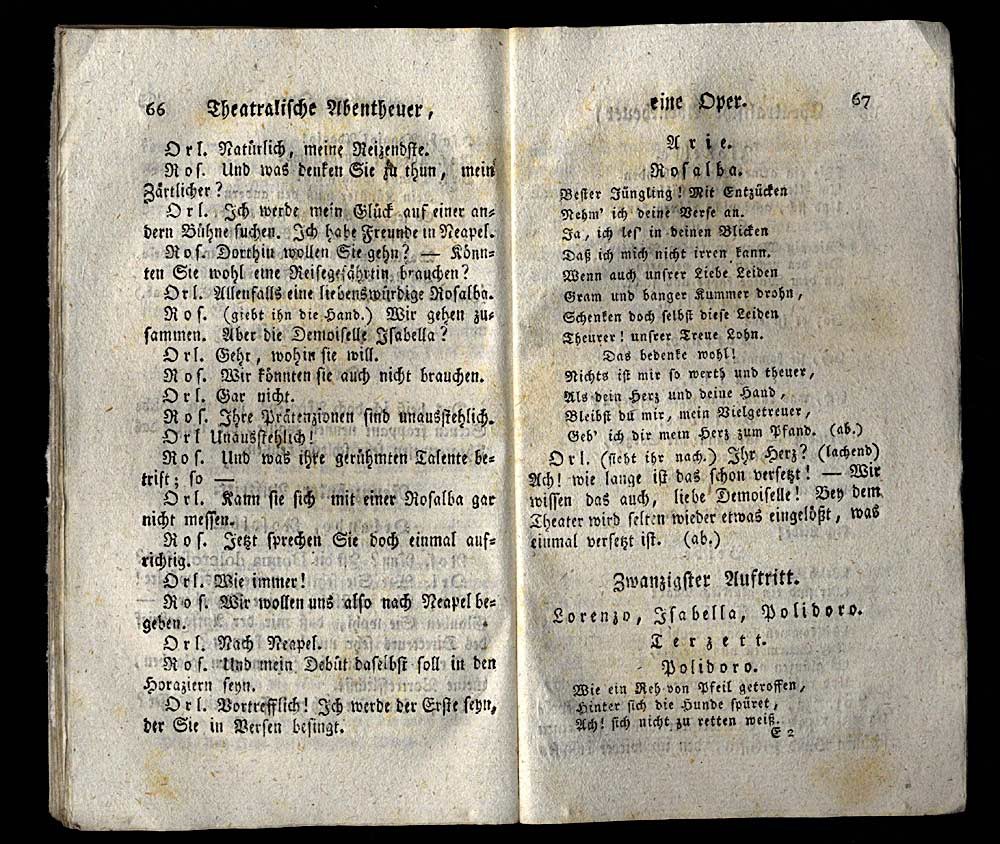 66 Theatralische Abentheuer,
Orl. Natürlich, meine Reizendste.
Ros. Und was denken Sie zu thun, mein
Zärtlicher?
Orl. Ich werde mein Glück auf einer an-
dern Bühne suchen. Ich habe Freunde in Neapel.
Ros. Dorthin wollen Sie gehn? — Könn-
ten Sie wohl eine Reisegefährtin brauchen?
Orl. Allenfalls eine liebenswürdige Rosalba.
Ros. (giebt ihn die Hand.) Wir gehen zu-
sammen. Aber die Demoiselle Isabella?
Orl. Gehe, wohin sie will.
Ros. Wir könnten sie auch nicht brauchen.
Orl. Gar nicht.
Ros. Ihre Prätenzionen sind unausstehlich.
Orl Unausstehlich!
Ros. Und was ihre gerühmten Talente be-
trift; so —
Orl. Kann sie sich mit einer Rosalba gar
nicht messen.
Ros. Jetzt sprechen Sie doch einmal auf-
richtig.
Orl. Wie immer!
Ros. Wir wollen uns also nach Neapel be-
geben.
Orl. Nach Neapel.
Ros. Und mein Debüt daselbst soll in den
Horaziern seyn.
Orl. Vortrefflich! Ich werde der Erste seyn,
der Sie in Versen besingt.
eine Oper. 67
Arie.
Rosalba.
Bester Jüngling! Mit Entzücken
Nehm' ich deine Verse an.
Ja, ich les' in deinen Blicken
Daß ich mich nicht irren kann.
Wenn auch unsrer Liebe Leiden
Gram und banger Kummer drohn,
Schenken doch selbst diese Leiden
Theurer! unsrer Treue Lohn.
Das bedenke wohl!
Nichts ist mir so werth und theuer,
Als dein Herz und deine Hand,
Bleibst du mir, mein Vielgetreuer,
Geb' ich dir mein Herz zum Pfand. (ab.)
Orl. (sieht ihr nach.) Ihr Herz? (lachend)
Ach! wie lange ist das schon versetzt! — Wir
wissen das auch, liebe Demoiselle! Bey dem
Theater wird selten wieder etwas eingelößt, was
einmal versetzt ist. (ab.)
Zwanzigster Auftritt.
Lorenzo, Isabella, Polidoro.
Terzett.
Polidoro.
Wie ein Reh von Pfeil getroffen,
Hinter sich die Hunde spüret,
Ach! sich nicht zu retten weiß.
E 2